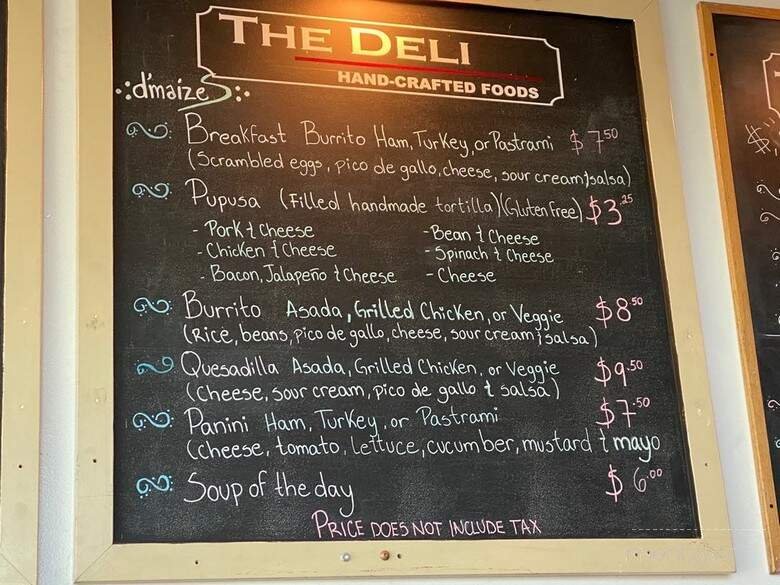 THE DELI
HAND-CRAFTED FOODS
d'maizeS
Breakfast Burrito Ham, Turkey, or Pastrami $7.50
(Scrambled eggs, pico de gallo, cheese, sour cream, salsa)
Pupusa (Filled handmade tortilla)(Gluten free) $3.25
- Pork & Cheese - Bean & Cheese
- Chicken & Cheese - Spinach & Cheese
- Bacon, Jalapeño & Cheese - Cheese
Burrito Asada, Grilled Chicken, or Veggie $8.50
(Rice, beans, pico de gallo, cheese, sour cream, salsa)
Quesadilla Asada, Grilled Chicken, or Veggie $9.50
(Cheese, sour cream, pico de gallo & salsa)
Panini Ham, Turkey, or Pastrami $7.50
(Cheese, tomato, lettuce, cucumber, mustard & mayo
Soup of the day $6.00
PRICE DOES NOT INCLUDE TAX